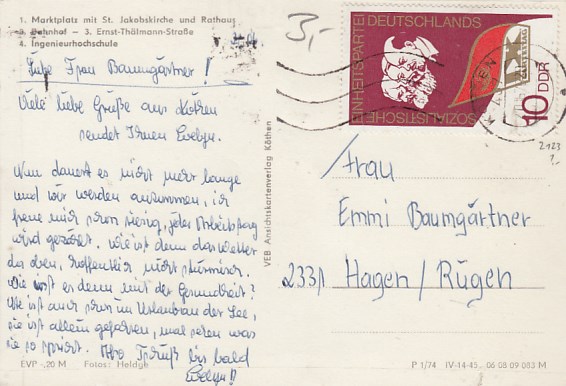 1. Marktplatz mit St. Jakobskirche und Rathaus
2. Bahnhof – 3. Ernst-Thälmann-Straße
4. Ingenieurhochschule
3,-
Liebe Frau Baumgärtner!
Viele liebe Grüße aus Köthen
sendet Ihnen Evelyn.
Nun dauert es nicht mehr lange
und wir werden ankommen, ich
freue mich schon riesig, jeder Arbeitstag
wird gezählt. Wie ist denn das Wetter
da oben, hoffentlich nicht stürmischer.
Wie ist es denn mit der Gesundheit?
sie ist allein gefahren, mal sehen was
sie so spricht. Also Tschüß bis bald
Evelyn!!
EVP -,20 M Fotos: Heldge
VEB Ansichtskartenverlag Köthen
SOZIALISTISCHE EINHEITSPARTEI DEUTSCHLANDS
IX. PARTEITAG
10 DDR
2123
Frau
Emmi Baumgärtner
2331 Hagen / Rügen
P 1/74 IV-14-45 06 08 09 083 M